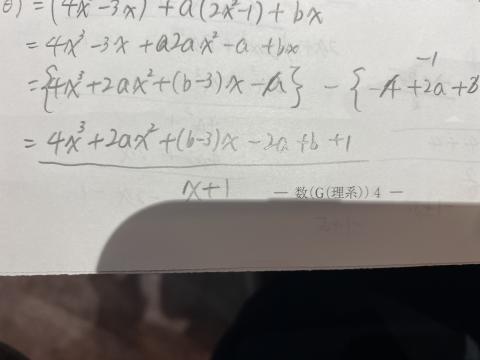 θ) = (4x³-3x) + a(2x²-1) + bx
= 4x³-3x+a2ax²-a+bx
={4x³+2ax²+(b-3)x-a} - {-4+2a+3
-1
= 4x³+2ax²+(b-3)x-2a+b+1
x+1
— 数(G(理系)) 4 —